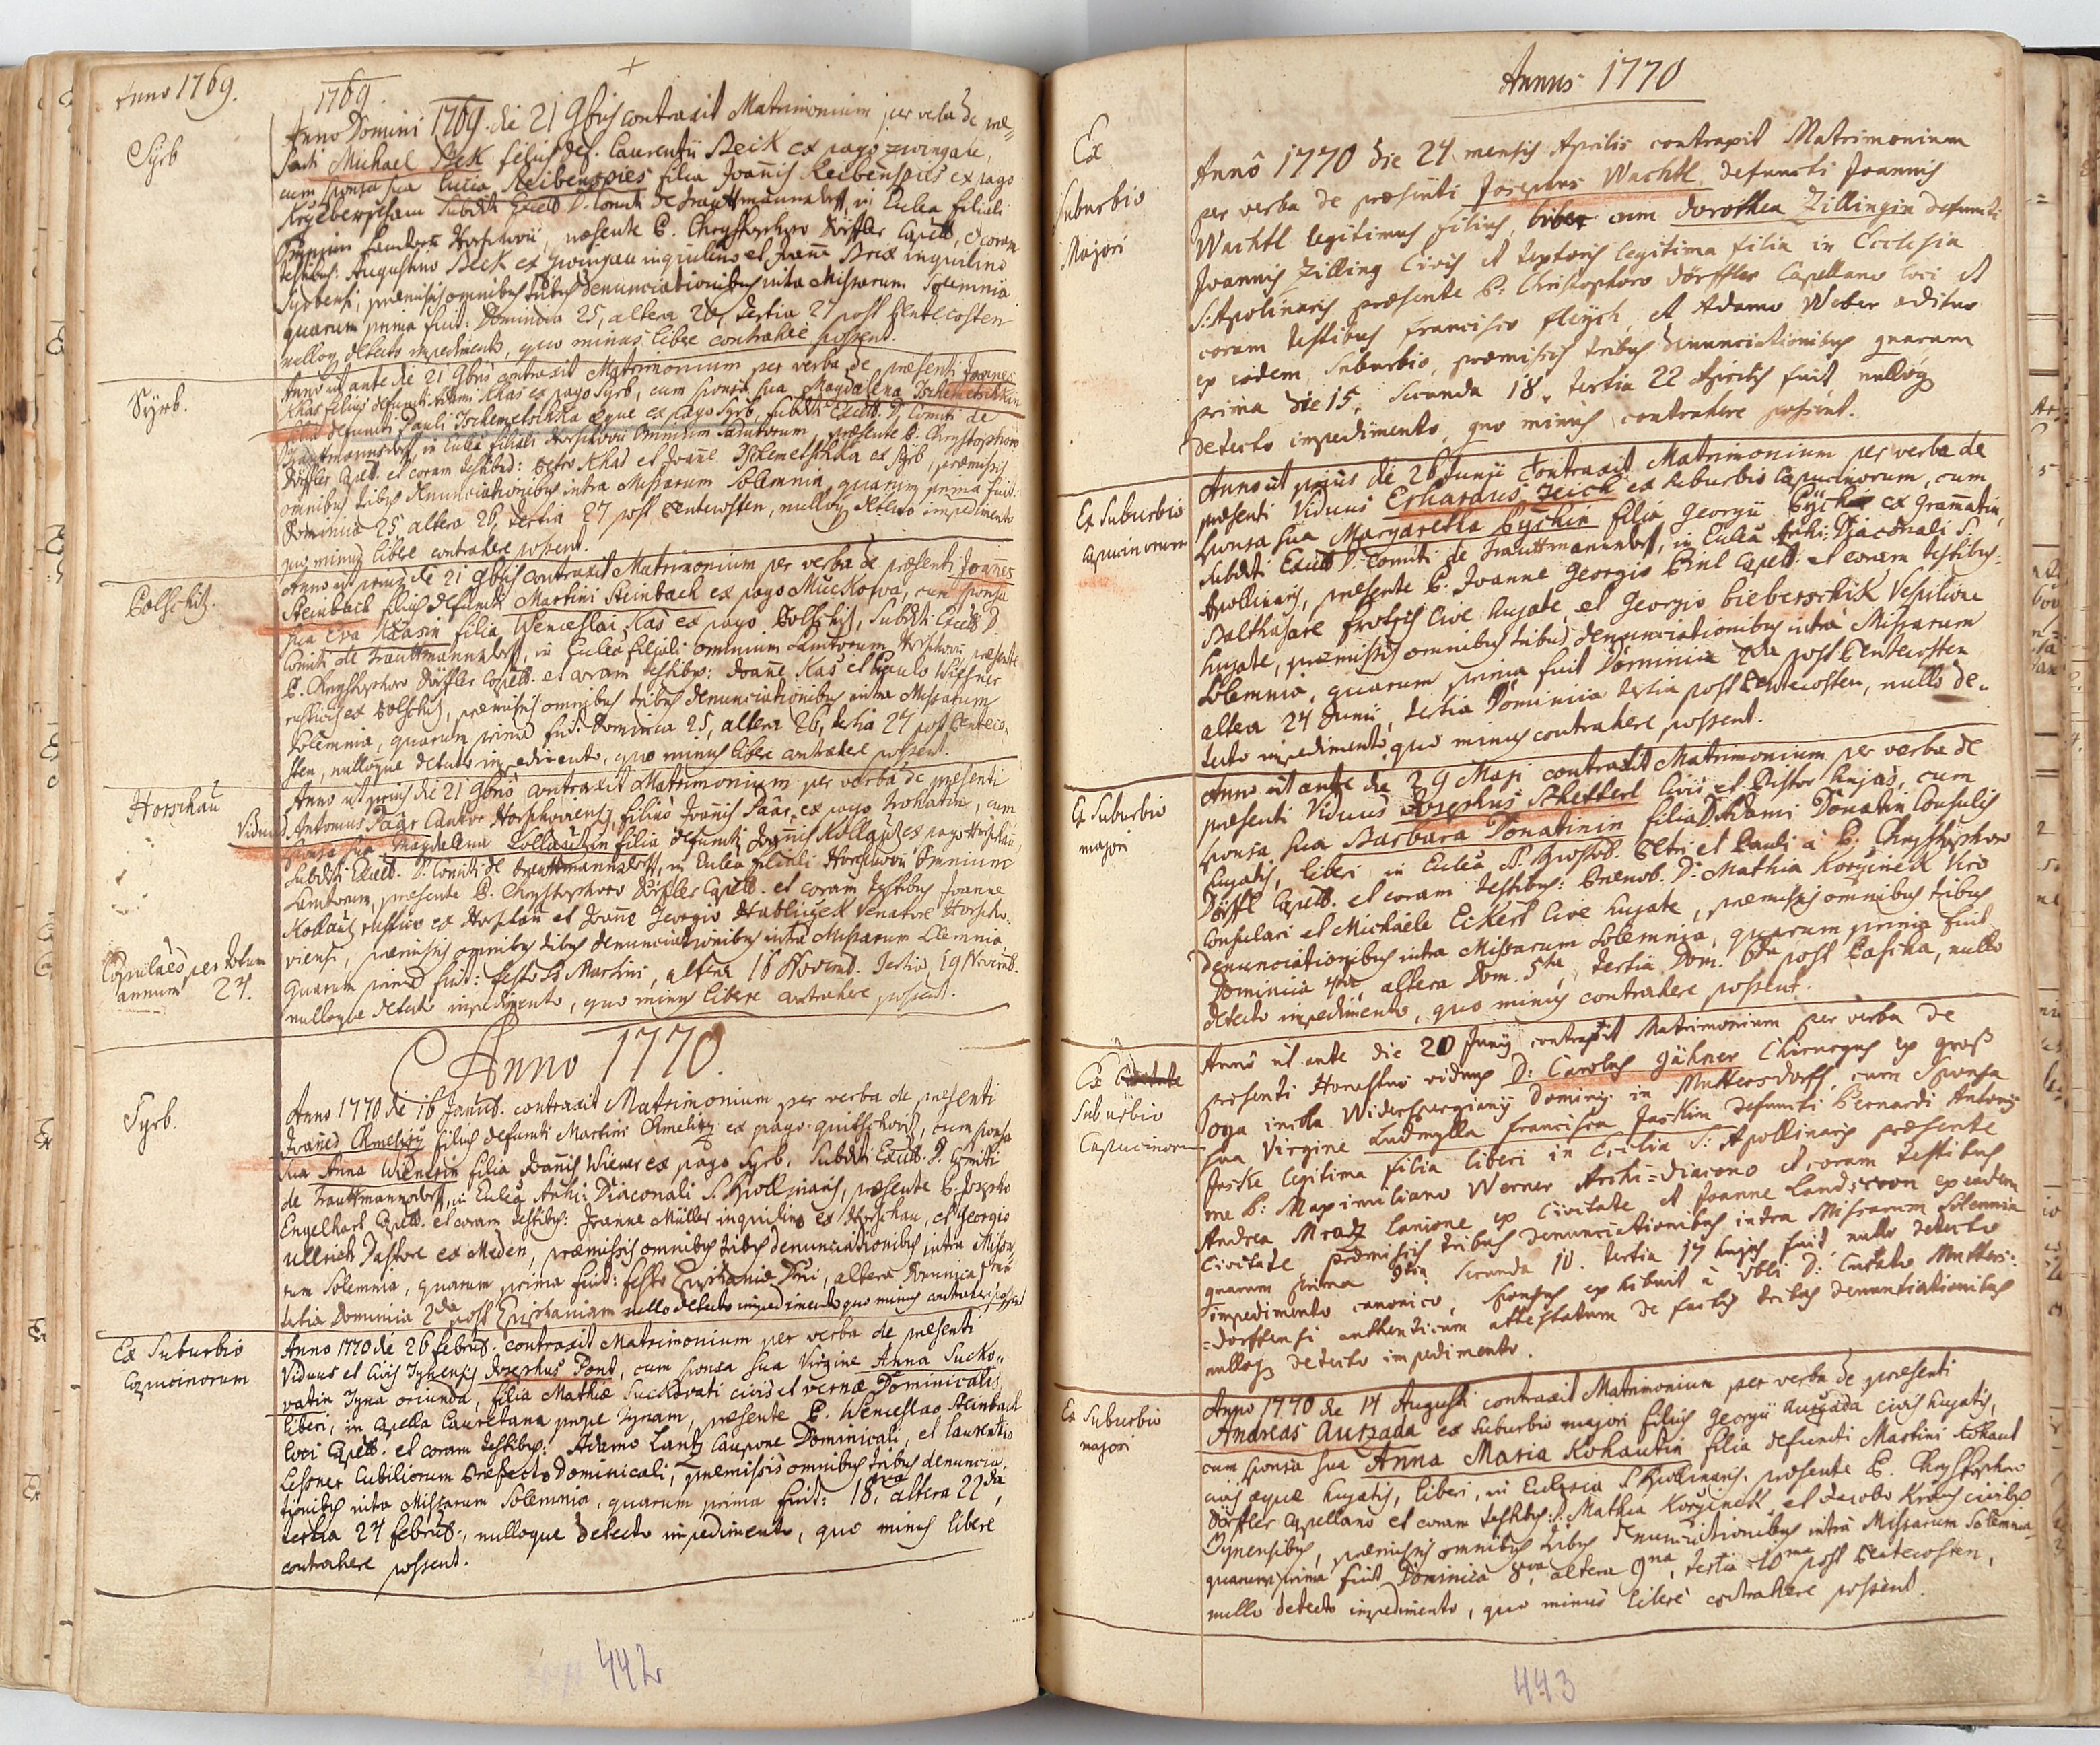 Anno 1769.
1769.
Syrb
Anno Domini 1769. die 21 9bris contraxit Matrimonium per verba de præ=
senti Michael Bek filius def. Laurentii Beik ex pago zwingau,
cum sponsa sua Lucia Reibenspies filia Joannis Reibenspies ex pago
subditi Excell. D. Comiti de Trauttmannsdorff, in Ecclea filiali
Omnium Sanctorum Horschovii, præsente P. Chrystophoro Dörffler Capell, et coram
testibus: Augustino Beck ex zwingau inquilino et Joanne Brix inquilino
Syrbensi, præmissis omnibus tribus denunciationibus intra Missarum Solemnia
quarum prima fuit: Dominica 25, altera 26, tertia 27 post Pentecosten
nulloq detecto impedimento, quo minus libere contrahere possent.
Syrb.
Anno ut ante die 21 9bris contraxit Matrimonium per verba de præsenti Joannes
Khas filius defuncti Khas ex pago Syrb, cum sponsa sua Magdalena Tschemetschkin
filia defuncti Pauli Tschemetschka æque ex pago Syrb, subditi Excell. D. Comiti de
Trauttmannsdorff, in Ecclea filiali Horschovii Omnium Sanctorum, præsente P. Chrystophoro
Dörffler Capell. et coram testibus: Petro Khas et Joanne Tschemetschka ex Syrb, præmissis
omnibus tribus denunciationibus intra Missarum Solemnia, quarum prima fuit:
Dominica 25 altera 26, tertia 27 post Pentecosten, nulloq detecto impedimento
quo minus libere contrahere possent.
Polschitz.
Anno ut prius die 21 9bris contraxit Matrimonium per verba de præsenti Joannes
Steinbach filius defuncti Martini Steinbach ex pago Muckowa, cum sponsa
sua Eva Kasin filia Wenceslai Kas ex pago Polschitz, subditi Excell D.
Comiti de Trauttmannsdorff, in Ecclea filiali Omnium Sanctorum Horschovii præsente
P. Chrystophoro Dörffler Capell. et coram testibus: Joanne Kas et Paulo Wiesner
rusticis ex Polschitz, præmissis omnibus tribus denunciationibus intra Missarum
Solemnia, quarum prima fuit: Dominica 25, altera 26, tertia 27 post Penteco-
sten, nulloque detecto impedimento, quo minus libere contrahere possent.
Horschau
Anno ut prius die 21 9bris contraxit Matrimonium per verba de præsenti
Viduus Antonius Paar Cantor Horschoviensis, filius Joannis Paar, ex pago, cum
sponsa sua Magdalena Kollautzin filia defuncti Joannis Kollautz ex pago Horschau,
subditi Excell. D. Comiti de Trauttmannsdorff, in Ecclea filiali Horschovii Omnium
Sanctorum, præsente P. Chrystophoro Dörffler Capell. et coram testibus Joanne
Kollautz rustico ex Horschau et Joanne Georgio Hubliczek Venatore Horscho-
viensi, præmissis omnibus tribus denunciationibus intra Missarum Solemnia,
quarum prima fuit: festo S. Martini, altera 16 Novemb. tertia 19 Novemb.
nulloque detecto impedimento, quo minus libere contrahere possent.
Copulatos per totum
annum 24.
Anno 1770.
Syrb.
Anno 1770 die 16 Januar. contraxit Matrimonium per verba de præsenti
Joannes Chmelitz filius defuncti Martini Chmelitz ex pago quittschovitz, cum sponsa
sua Anna Wienerin filia Joannis Wiener ex pago Syrb, subditi Excell. D. Comiti
de Trauttmannsdorff, in Ecclea Archi: Diaconali S. Apollinaris, præsente P. Josepho
Engelhart Capell. et coram testibus: Joanne Müller inquilino ex Horschau, et Georgio
Ullrich Pastore ex Meden, præmissis omnibus tribus denunciationibus intra Missa-
rum Solemnia, quarum prima fuit: festo Epiphaniæ Dni, altera Dominica 1ma
tertia Dominica 2da post Epiphaniam nullo detecto impedimento quo minus contrahere possent
Ex Suburbio
Capucinorum
Anno 1770 die 26 febrii. contraxit Matrimonium per verba de præsenti
Viduus et Civis Tynensis Josephus Pond, cum sponsa sua Virgine Anna Sucko-
vatin Tyna oriunda, filia Mathiæ Suckovati civis et vernæ Dominicalis
liberi, in Capella Lauretana prope Tynam, præsente P. Wenceslao Steinbach
loci Capell. et coram testibus: Adamo Lantz Caupone Dominicali, et Laurentio
Lessner Cubiliorum Præfecto Dominicali, præmissis omnibus tribus denuncia-
tionibus intra Missarum Solemnia, quarum prima fuit: 18va, altera 22da,
tertia 24 febrii., nulloque detecto impedimento, quo minus libere
contrahere possent.
442
Annus 1770
Ex
Suburbio
Majori
Annô 1770 die 24 mensis Aprilis contraxit Matrimonium
per verba de præsenti Josephus Wachtl defuncti Joannis
Wachtl legitimus filius, liber cum Dorothea Zillingin defuncti
Joannis Zilling Civis et textoris legitima filia in Ecclesia
S: Apolinaris præsente P: Christophoro Dörffler Capellano loci et
coram testibus Francisco Fleisch, et Adamo Weber ædituo
ex eodem Suburbio, præmissis tribus denunciationibus quarum
prima die 15, secunda 18, tertia 22 Aprilis fuit nulloq
detecto impedimento, quo minus contrahere possent.
Ex Suburbio
Capucinorum
Anno ut prius die 26 Junii contraxit Matrimonium per verba de
præsenti Viduus Erhardus Zeich ex suburbio Capucinorum, cum
sponsa sua Margaretha Pyschin filia Georgii Pysch ex Gramatin,
subditi Excell D. Comiti de Trauttmannsdorff, in Ecclea Archi: Diaconali S.
Apollinaris, præsente P. Joanne Georgio Pinl Capell. et coram testibus:
Balthasare Frotsch Cive hujate, et Georgio Bieberschik Vespilione
hujate, præmissis omnibus tribus denunciationibus intra Missarum
Solemnia, quarum prima fuit Dominica 2da post Pentecosten
altera 24 Junii, tertia Dominica tertia post Pentecosten, nullo de-
tecto impedimento, quo minus contrahere possent.
Ex Suburbio
majori
Anno ut ante die 29 Maji contraxit Matrimonium per verba de
præsenti Viduus Josephus Scheffert Civis et Pistor hujas, cum
sponsa sua Barbara Donatinin filia D. Adami Donatin Consulis
hujatis, liberi in Ecclea SS. Apostol. Petri et Pauli à P. Chrystophoro
Dörffl Capell. et coram testibus: Prænob. D. Mathia Korzinek Viro
Consulari et Michaele Eckert Cive hujate, præmissis omnibus tribus
denunciationibus intra Missarum Solemnia, quarum prima fuit
Dominica 4ta, altera Dom. 5ta, tertia Dom. 6ta post Pascha, nullo
detecto impedimento, quo minus contrahere possent.
Ex Civitate
Suburbio
Capucinorum
Annô ut ante die 20 Junij contraxit Matrimonium per verba de
præsenti Honestus viduus D: Carolus Gühner Chirurgus ex groß
incola Widerspergianij Dominij in Muttersdorff, cum Sponsa
sua Virgine Ludmylla Francisca Jaskin defuncti Bernardi Antonij
Jaske legitima filia liberi in Ecclesia S: Apollinaris præsente
me P: Maximiliano Werner Archi=diacono et coram testibus
Andrea Mratz Lanione ex Civitate et Joanne Landscron ex eadem
Civitate præmissis tribus denunciationibus intra Missarum Solemnia
quarum prima 3tia secunda 10. tertia 17 hujus fuit, nullo detecto
impedimento canonico, sponsus exhibuit à D: Curato Mutters:
=dorffensi authenticum attestatum de factis tribus denuntiationibus
nulloq detecto impedimento.
Ex Suburbio
majori
Anno 1770 die 14 Augusti contraxit Matrimonium per verba de præsenti
Andreas Autzada ex Suburbio majori filius Georgii Autzada civis hujatis,
cum sponsa sua Anna Maria Kohautin filia defuncti Martini Kohaut
civis æque hujatis, liberi, in Ecclesia S. Apollinaris, præsente P. Chrystophoro
Dörffler Capellano et coram testibus: D. Mathia Korzinek, et Jacobo Kraus civibus
Tynensibus, præmissis omnibus tribus denunciationibus intra Missarum Solemnia
quarum prima fuit Dominica 8va, altera 9na, tertia 10ma post Pentecosten,
nullo detecto impedimento, quo minus libere contrahere possent.
443